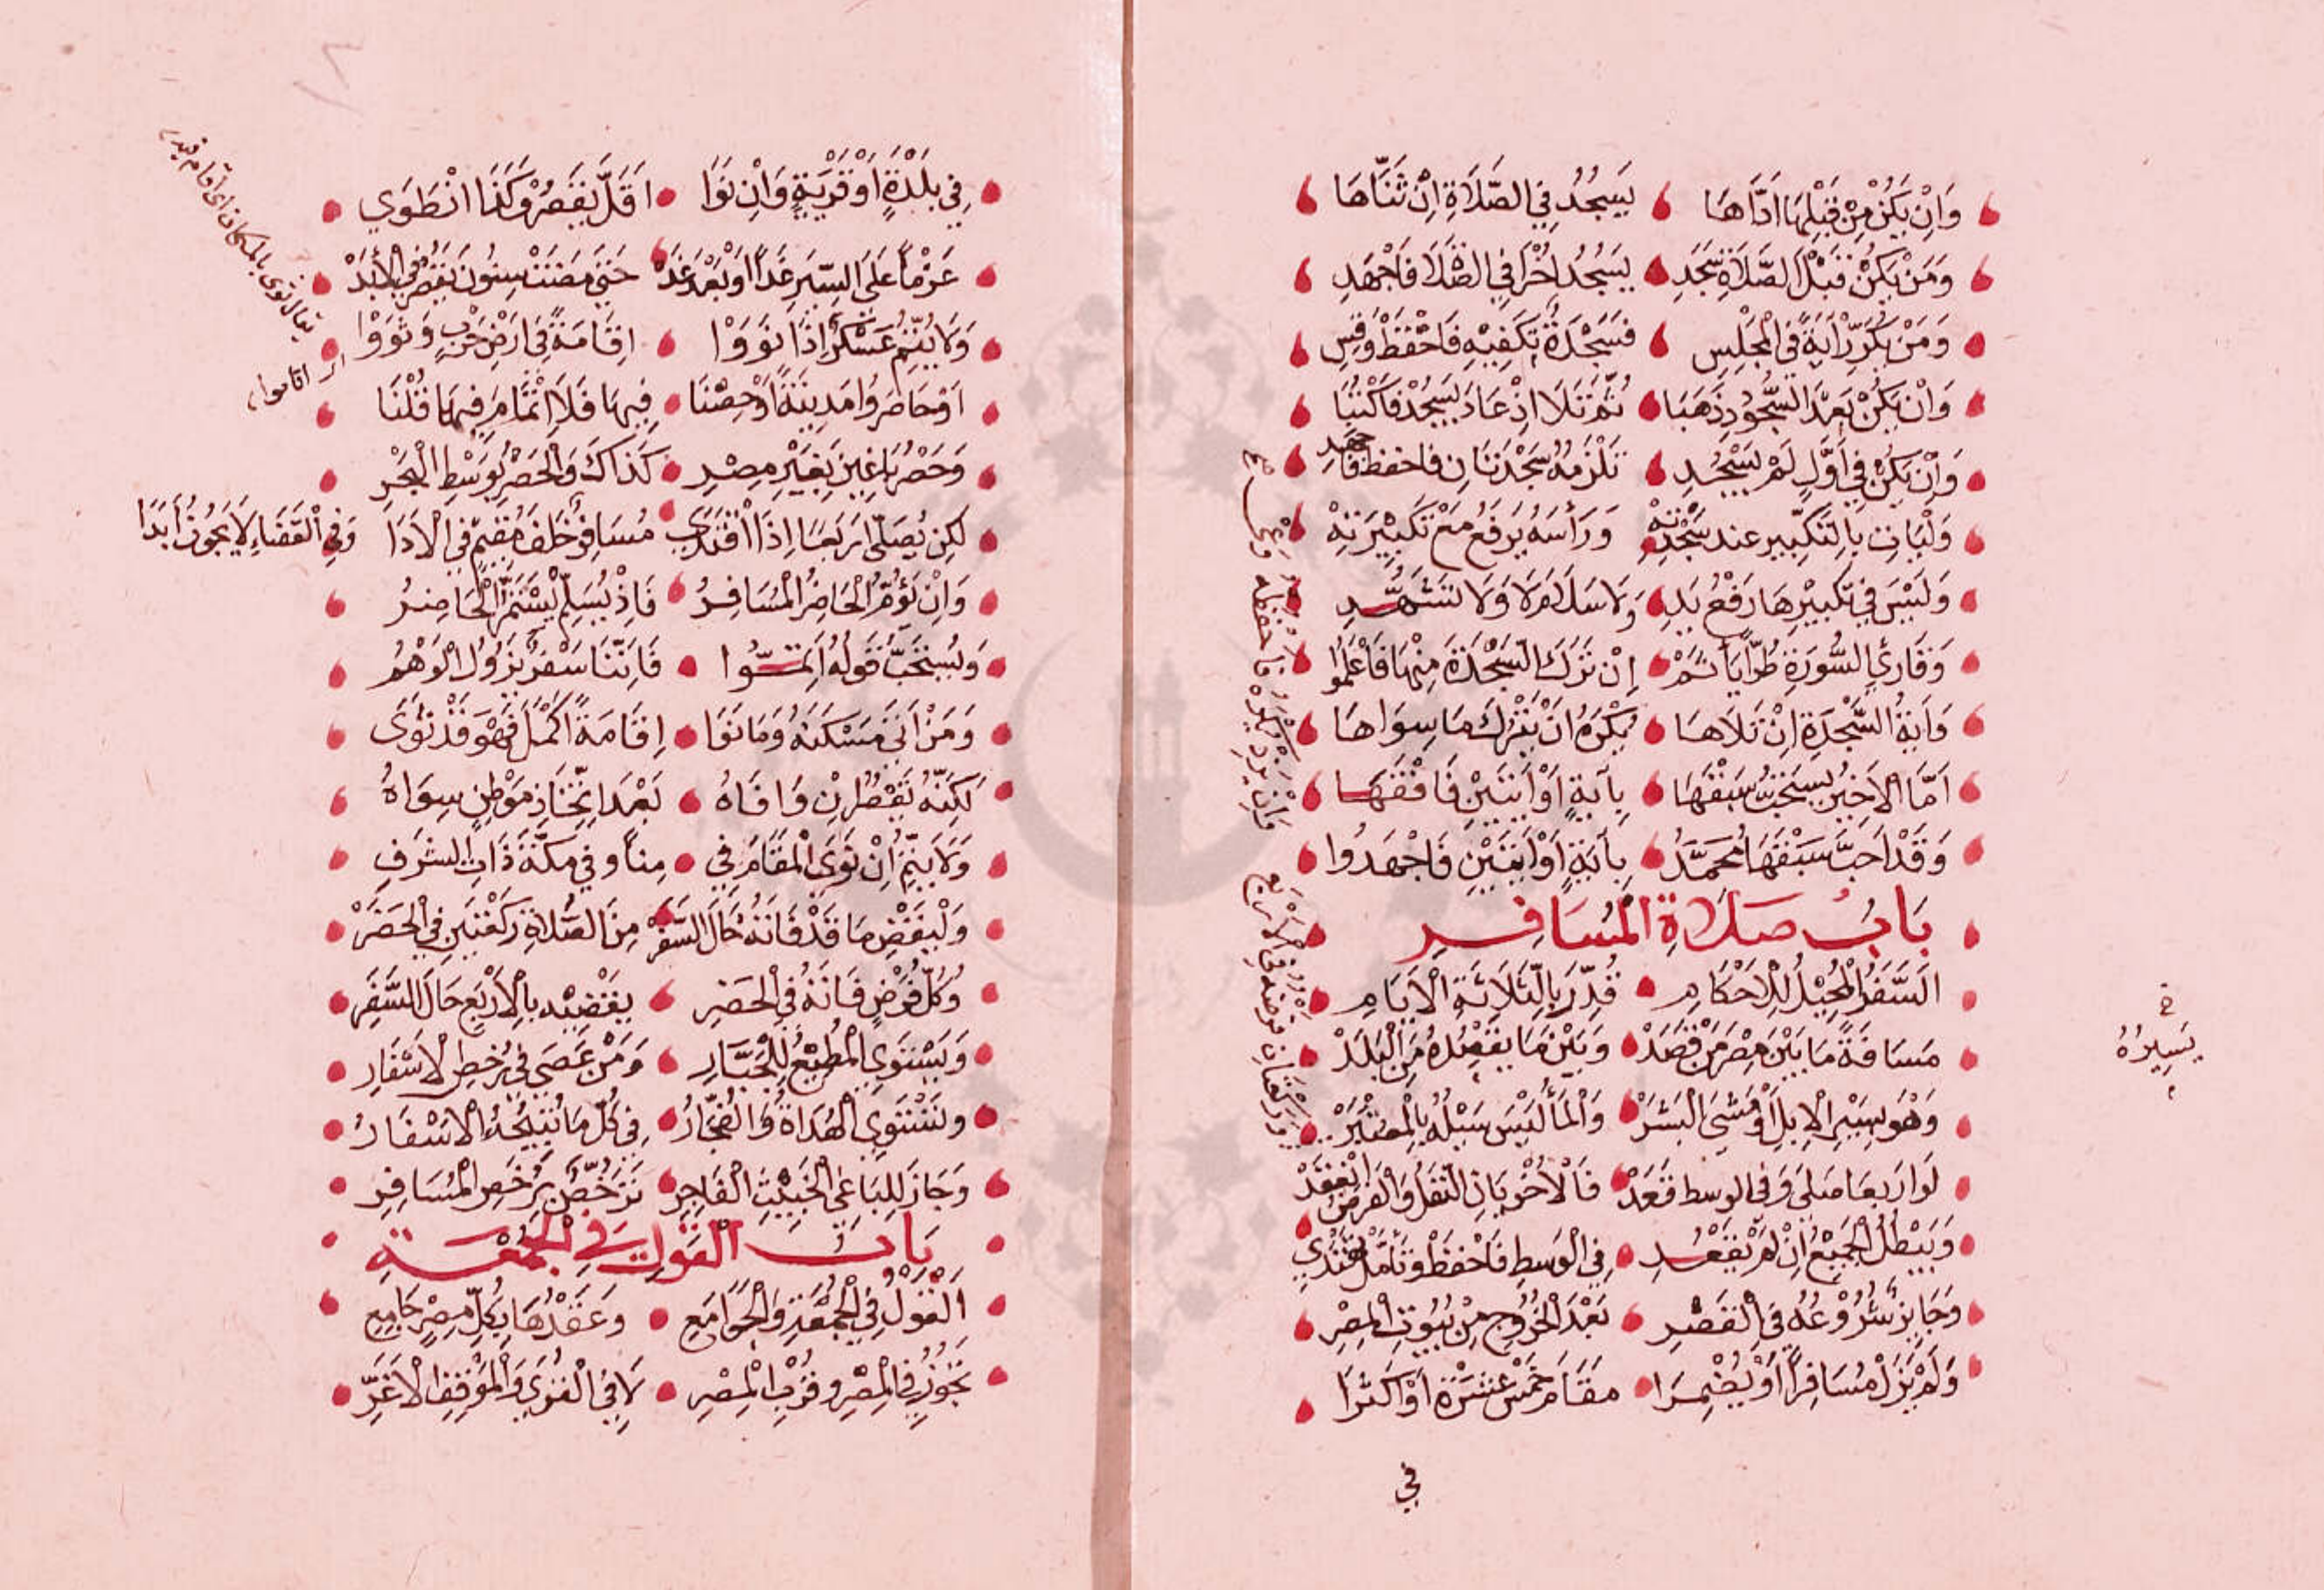 وَاِنْ يَكُنْ مِنْ قَبْلِهَا اَدَّاهَا يَسْجُدُ فِي الصَّلَاةِ اِنْ ثَنَّاهَا
وَمَنْ يَكُنْ قَبْلَ الصَّلَاةِ سَجَدِ يَسْجُدُ اُخْرٰا فِي الصَّلَا فَاجْهَدِ
وَمَنْ يُكَرِّرْ اٰيَةً فِي الْمَجْلِسِ فَسَجْدَةٌ تَكْفِيْهِ فَاحْفَظْ وَقِسِ
وَاِنْ يَكُنْ بَعْدَ السُّجُودِ ذَهَبَا ثُمَّ تَلَا اِذْ عَادَ يَسْجُدْ فَاكْتُبَا
وَاِنْ يَكُنْ فِي اَوَّلٍ لَمْ يَسْجُدِ تَلْزَمْهُ سَجْدَتَانِ فاحفظ فَاجْهَدِ
وَلْيَاتِ بِالتَّكْبِيرِ عند سَجْدَتِهْ وَرَأسَهُ يَرْفَعُ مَعْ تَكْبِيْرَتِهْ
وَلَيْسَ فِي تَكْبِيْرِهَا رَفْعُ يَدِ وَلَا سَلَامَ لَا وَلَا تَشَهُّدِ
وَقَارِئُ السُّورَةِ طُرًّا يَأثَمْ اِنْ تَرَكَ السَّجْدَةَ مِنْهَا فَاعْلَمُوا
وَاٰيَةُ السَّجْدَةِ اِنْ تَلَاهَا يُكْرَهُ اَنْ يَتْرُكَ مَا سِوَاهَا
اَمَّا الْاَخِيْرُ يُسْتَحَبُّ سَبْقَهَا بِآيَةٍ اَوْ اٰيَتَيْنِ فَافْقَهَا
وَقَدْ اَحَبَّ سَبْقَهَا مُحَمَّدُ بِآيَةٍ اَوْ اٰيَتَيْنِ فَاجْهَدُوا
بَابُ صَلَاةِ الْمُسَافِرِ
اَلسَّفَرُ الْمُحِيْلُ لِلْاَحْكَامِ قُدِّرَ بِالثَّلَاثَةِ الْاَيَامِ
مَسَافَةً مَا بَيْنَ مِصْرِ مَنْ قَصَدْ وَبَيْنَ مَا يَقْصِدُهُ مِنَ الْبَلَدْ
وَهْوَ بِسَيْرِ الْاِبِلِ اَوْ مَشْيِ الْبَشَرْ وَالْمَأُ لَيْسَ سَيْلُهُ بِالْمُعْتَبَرْ
يَسِيرُهُ
لَوْ اَرْبَعًا صَلَى وَفِي الوسط قَعَدْ فَالْاُخْرَيَانِ النَّفْلُ وَالْفَرْضُ انْعَقَدْ
وَيَبْطُلُ الْجَمِيْعُ اِنْ لَمْ يَقْعُدِ فِي الْوَسَطِ فَاحْفَظْ وَتَأَمَّلْ تَقْتَدِي
وَجَايِزٌ شُرُوْعُهُ فِي الْقَصْرِ بَعْدَ الْخُرُوْجِ مِنْ بُيُوتِ الْمِصْرِ
وَلَمْ يَزَلْ مُسَافِرًا اَوْ يُضْمِرَا مقَامَ خَمْسَ عَشْرَةَ اَوْ اَكْثَرَا
في
فِي بَلْدَةٍ اَوْ قَرْيَةٍ وَاِنْ نَوَا اَقَلَّ يَقْصُرْ وَكَذَا انْطَوَي
عَزْمًا عَلَى السَّيْرِ غَدًا اَوْ بَعْدَ غَدْ حَتَى مَضَتْ سِنُونَ يَقْصُرْ فِي الْأَبَدْ
وَلَا يُتِمُّ عَسْكَرٌ اِذَا نَوَوْا اِقَامَةً فِي اَرْضِ حَرْبٍ وَثَوَوْا
اَوْ حَاصَرُوا مَدِينَةً اَوْ حِصْنَا فِيهَا فَلَا اِتْمَامَ فِيهَا قُلْنَا
وَحَصْرُ بَاغِيْنَ بِغَيْرِ مِصْرِ كَذَاكَ وَالْحَصْرُ بِوَسْطِ الْبَحْرِ
لكِنْ يُصَلِّي اَرْبَعًا اِذَا اقْتَدَي مُسَافِرٌ خَلْفَ مُقِيْمٍ فِي الْاَدَا وَفِي الْقَضَاءِ لَا يَجُوزُ اَبَدَا
وَاِنْ يَؤُمَّ الْحَاضِرَ الْمُسَافِرُ فَاِذْ يُسَلِّمْ يُسْتَتَمَّ الْحَاضِرُ
وَيُسْتَحَبُّ قَولُهُ اَتِمُّوا فَاِنَّنَا سَفْرٌ يَزُوْلُ الْوَهْمُ
وَمَنْ اَتَى مَسْكَنَهُ وَمَا نَوَا اِقَامَةً اَكْمَلَ فَهْوَ قَدْ ثَوَى
لَكِنَّهُ يَقْصُرُ اِنْ وَافَاهُ بَعْدَ اتِّخَاذِ مَوْطِنٍ سِوَاهُ
وَلَا يُتِمُّ اِنْ نَوَى الْمَقَامَ فِي مِنًا و في مَكَّةَ ذَاتِ الشَّرَفِ
وَلْيَقْضِ مَا قَدْ فَاتَهُ حَالَ السَّفَرْ مِنَ الصَّلَاةِ رَكْعَتَيْنِ فِي الْحَضَرْ
وَكُلُّ فَرْضٍ فَاتَهُ فِي الْحَضَرِ يَقْضِيْهِ بِالْاَرْبَعِ حَالَ السَّفَرِ
وَيَسْتَوِي الْمُطِيْعُ لِلْجَبَّارِ وَمَنْ عَصَى فِي رُخَصِ الْاَسْفَارِ
وَتَسْتَوِي الْهُدَاةُ وَالْفُجَّارُ فِي كُلِّ مَا تُبِيْحُهُ الْاَسْفَارُ
وَجَازَ لِلْبَاغِي الْخَبِيْثِ الْفَاجِرِ تَرَخُّصٌ بِرُخَصِ الْمُسَافِرِ
بَابُ الْقَوْلِ فِي الْجُمْعَةِ
اَلْقَوْلُ فِي الْجُمْعَةِ وَالْجَوَامِعِ وَعَقْدُهَا بِكُلِّ مِصْرٍ جَامِعِ
تَجُوْزُ فِي الْمِصْرِ وقُرْبِ الْمِصْرِ لَا فِي الْقُرَى وَالْمَوْقِفِ الْاَغَرِّ